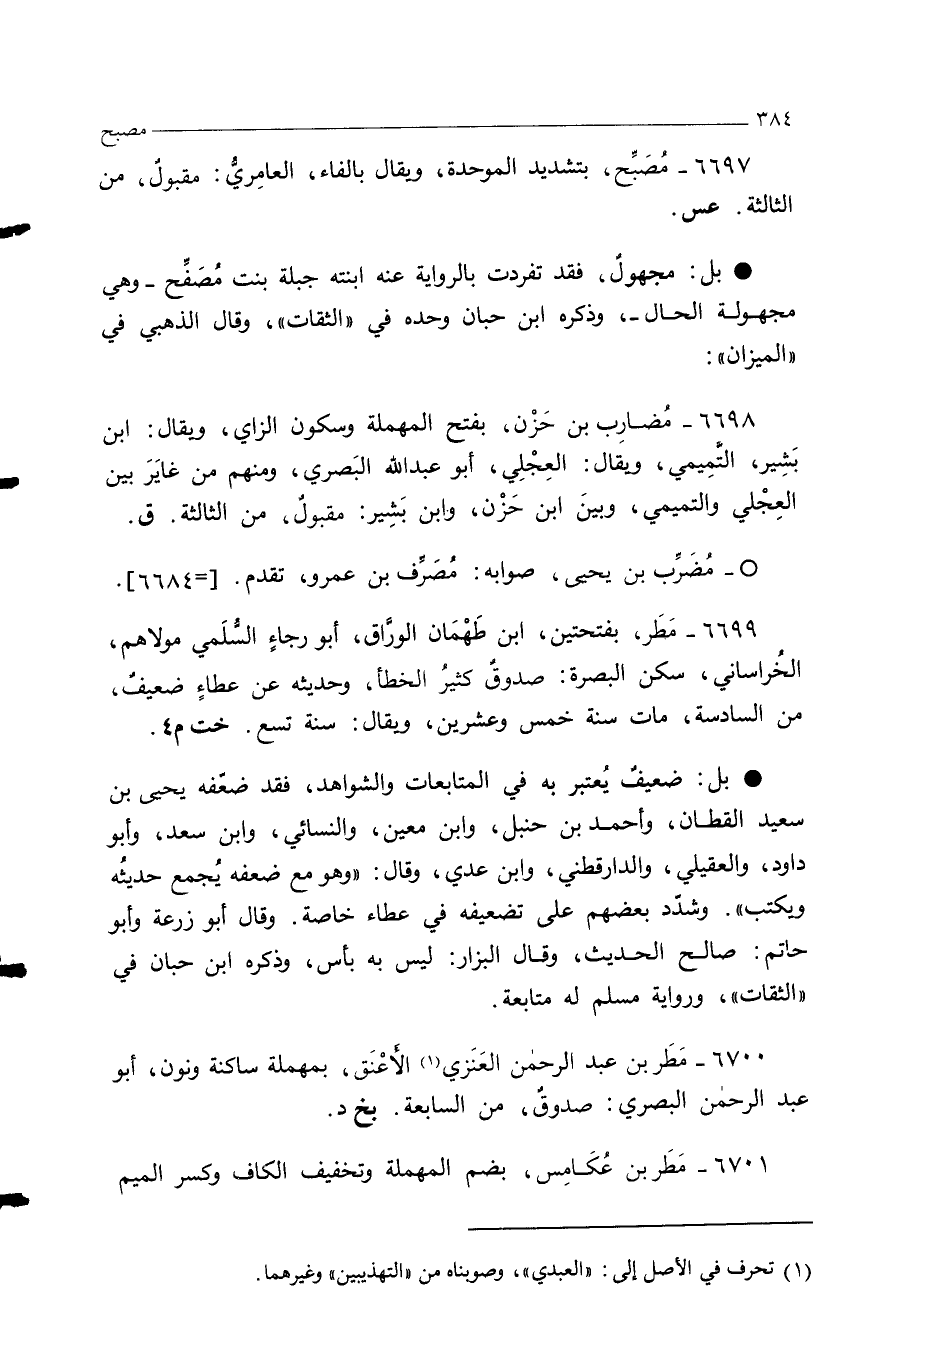 ٣٨٤ مصبح
٦٦٩٧ ـ مُصَبِّح، بتشديد الموحدة، ويقال بالفاء، العامِريُّ: مقبولٌ، من
الثالثة. عس.
● بل: مجهولٌ، فقد تفردت بالرواية عنه ابنته جبلة بنت مُصَفِّح ـ وهي
مجهولة الحال ـ، وذكره ابن حبان وحده في «الثقات»، وقال الذهبي في
«الميزان»:
٦٦٩٨ ـ مُضارِب بن حَزْن، بفتح المهملة وسكون الزاي، ويقال: ابن
بَشِير، التَّمِيمي، ويقال: العِجْلِي، أبو عبدالله البَصري، ومنهم من غايَرَ بين
العِجْلي والتميمي، وبينَ ابن حَزْن، وابن بَشِير: مقبولٌ، من الثالثة. ق.
○ ـ مُضَرِّب بن يحيى، صوابه: مُصَرِّف بن عمرو، تقدم. [=٦٦٨٤].
٦٦٩٩ ـ مَطَر، بفتحتين، ابن طَهْمَان الورَّاق، أبو رجاءٍ السُّلَمي مولاهم،
الخُراساني، سكن البصرة: صدوقٌ كثيرُ الخطأ، وحديثه عن عطاءٍ ضعيفٌ،
من السادسة، مات سنة خمس وعشرين، ويقال: سنة تسع. خت م٤.
● بل: ضعيفٌ يُعتبر به في المتابعات والشواهد، فقد ضعّفه يحيى بن
سعيد القطان، وأحمد بن حنبل، وابن معين، والنسائي، وابن سعد، وأبو
داود، والعقيلي، والدارقطني، وابن عدي، وقال: «وهو مع ضعفه يُجمع حديثُه
ويكتب». وشدّد بعضهم على تضعيفه في عطاء خاصة. وقال أبو زرعة وأبو
حاتم: صالح الحديث، وقال البزار: ليس به بأس، وذكره ابن حبان في
«الثقات»، ورواية مسلم له متابعة.
٦٧٠٠ ـ مَطَر بن عبد الرحمٰن العَنَزي(١) الأَعْنَق، بمهملة ساكنة ونون، أبو
عبد الرحمٰن البصري: صدوقٌ، من السابعة. بخ د.
٦٧٠١ ـ مَطَر بن عُكَامِس، بضم المهملة وتخفيف الكاف وكسر الميم
(١) تحرف في الأصل إلى: «العبدي»، وصوبناه من «التهذيبين» وغيرهما.